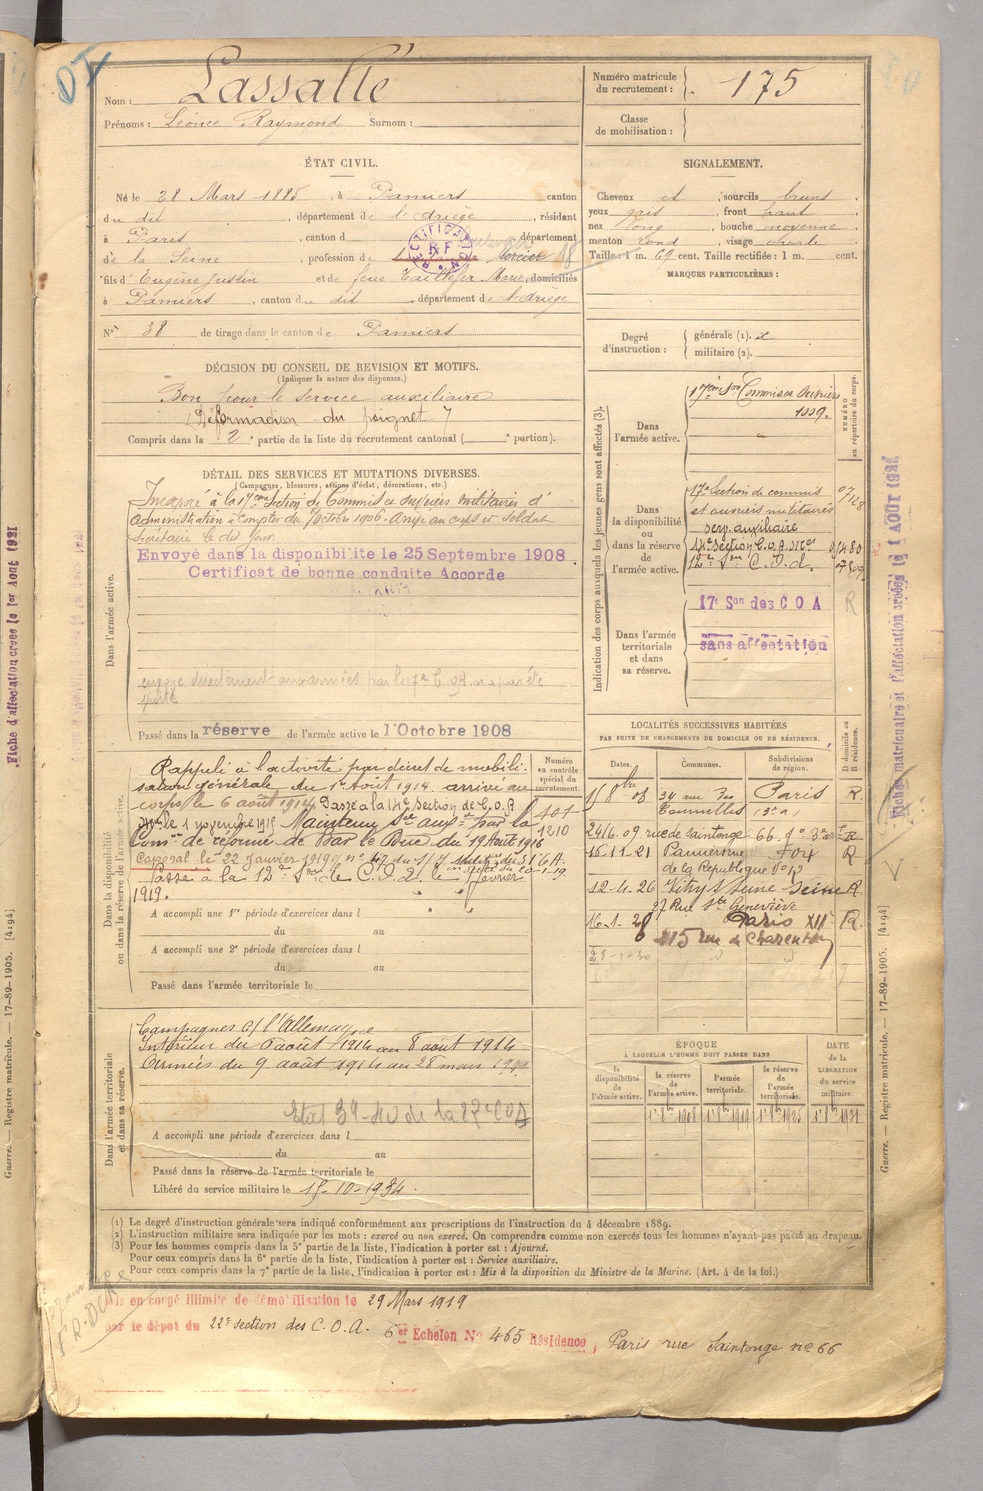 Nom : Lassalle
Prénoms : Léonce Raymond Surnom :
Numéro matricule du recrutement : 175
Classe de mobilisation :
ÉTAT CIVIL.
Né le 28 Mars 1885, à Pamiers canton
du dit, département de l'Ariège, résidant
à Paris, canton d département
de la Seine, profession de Mercier
fils d'Eugène Justin et de feue Taillefer Marie, domiciliés
à Pamiers, canton du dit, département de l'Ariège
N° 38 de tirage dans le canton de Pamiers
RECTIFICATION RF
SIGNALEMENT.
Cheveux et, sourcils bruns
yeux gris, front haut
nez long, bouche moyenne
menton rond, visage ovale
Taille : 1 m. 69 cent. Taille rectifiée : 1 m. cent.
MARQUES PARTICULIÈRES :
Degré d'instruction : générale (1). 2
militaire (2).
DÉCISION DU CONSEIL DE REVISION ET MOTIFS.
(Indiquer la nature des dispenses.)
Bon pour le service auxiliaire
(Déformation du poignet)
Compris dans la 2e partie de la liste du recrutement cantonal ( e portion).
DÉTAIL DES SERVICES ET MUTATIONS DIVERSES.
(Campagnes, blessures, actions d'éclat, décorations, etc.)
Dans l'armée active.
Incorporé à la 17ème Section de Commis et ouvriers militaires d'
administration à compter du 7 octobre 1906. Arrivé au corps et soldat
secrétaire le dit jour.
Envoyé dans la disponibilité le 25 Septembre 1908
Certificat de bonne conduite Accordé
Passé dans la réserve de l'armée active le 1er Octobre 1908
Indication des corps auxquels les jeunes gens sont affectés (3).
NUMÉRO au répertoire du corps.
Dans l'armée active.
17ème Son Commis et Ouvriers
1009.
Dans la disponibilité ou dans la réserve de l'armée active.
17e Section de commis
et ouvriers militaires
serv. auxiliaire
14e Section C.O.A.
12e Son C.O.A.
Dans l'armée territoriale et dans sa réserve.
17e Son des C O A
sans affectation
R
Dans la disponibilité ou dans la réserve de l'armée active.
Numéro au contrôle spécial du recrutement.
Rappelé à l'activité par décret de mobili-
sation générale du 1er Août 1914. arrivé au
corps le 6 août 1914. Passé à la 14e Section de C.O.A
le 1 novembre 1915 Maintenu Sce auxre par la
Comon de réforme de Bar le Duc du 19 Août 1916
Caporal le 22 janvier 1919
Passé à la 12e Son de C.O.A. le février
1919.
401
1210
A accompli une 1re période d'exercices dans l
du au
A accompli une 2e période d'exercices dans l
du au
Passé dans l'armée territoriale le
LOCALITÉS SUCCESSIVES HABITÉES
PAR SUITE DE CHANGEMENTS DE DOMICILE OU DE RÉSIDENCE.
Dates. Communes. Subdivisions de région. D domicile ou R résidence.
34 rue des Tournelles Paris R.
24 16.09 rue de Saintonge 66 R
16-11-21 Pamiers rue de la République R
12-4-26 Vitry s Seine Seine R.
27 Rue Ste Geneviève
16-1-28 Paris XII R.
215 rue de Charenton
Dans l'armée territoriale et dans sa réserve.
Campagnes c/ l'Allemagne
Intérieur du 6 août 1914 au 8 août 1914
Armées du 9 août 1914 au 28 mars 1919
A accompli une période d'exercices dans l
du au
Passé dans la réserve de l'armée territoriale le
Libéré du service militaire le 15-10-1934
ÉPOQUE
À LAQUELLE L'HOMME DOIT PASSER DANS
la disponibilité de l'armée active. la réserve de l'armée active. l'armée territoriale. la réserve de l'armée territoriale.
DATE de la LIBÉRATION du service militaire.
1er 8bre 1908 1er 8bre 1919 1er 8bre 1925 1er 8bre 1931
(1) Le degré d'instruction générale sera indiqué conformément aux prescriptions de l'instruction du 4 décembre 1889.
(2) L'instruction militaire sera indiquée par les mots : exercé ou non exercé. On comprendra comme non exercés tous les hommes n'ayant pas passé au drapeau.
(3) Pour les hommes compris dans la 5e partie de la liste, l'indication à porter est : Ajourné.
Pour ceux compris dans la 6e partie de la liste, l'indication à porter est : Service auxiliaire.
Pour ceux compris dans la 7e partie de la liste, l'indication à porter est : Mis à la disposition du Ministre de la Marine. (Art. 4 de la loi.)
Mis en congé illimité de démobilisation le 29 Mars 1919
par le dépôt du 22e section des C.O.A. 6e Echelon No 465 Résidence, Paris rue Saintonge no 66
Guerre. — Registre matricule. — 17-89-1905. [4194]
Guerre. — Registre matricule. — 17-89-1905. [4194]
Fiche d'affectation créée le 1er Août 1921